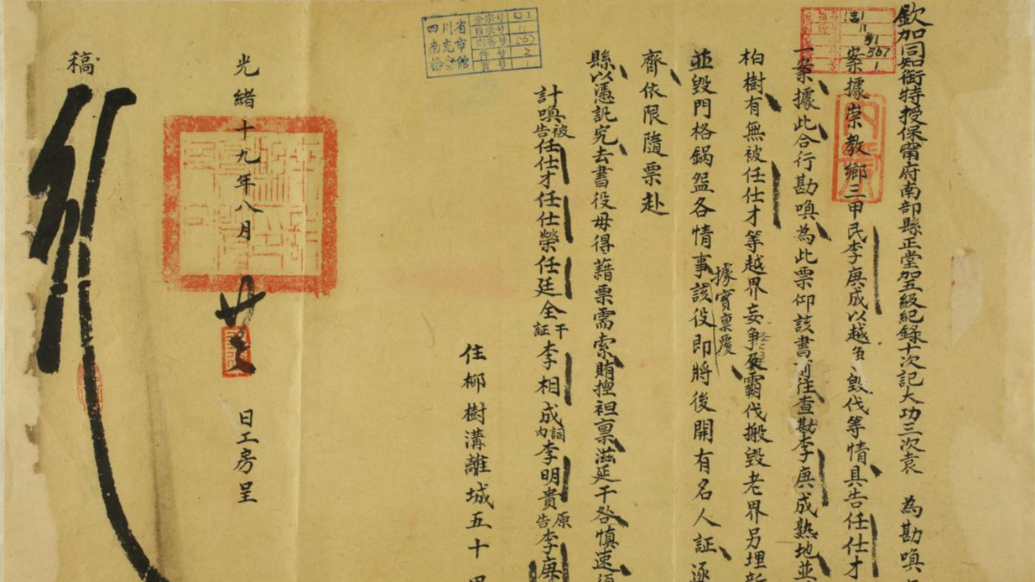 欽加同知銜特授保甯府南部縣正堂加五級紀錄十次記大功三次袁　為勘喚
案據崇教鄉三甲民李庚成以越界毀伐等情具告任仕才
一案據此合行勘喚為此票仰該書前往查勘李庚成熟地並
柏樹有無被任仕才等越界妄爭霸伐搬毀老界另埋新
並毀門格鍋盌各情事該役即將後開有名人証逐
據實禀覆
齊依限隨票赴
縣以憑訊究去書役毋得藉票需索賄擅袒禀滋延干咎慎速
計喚被告任仕才任仕榮任廷全干証李相成詞內李明貴原告李庚
住柳樹溝離城五十
光緒十九年八月廿　日工房呈
稿
行